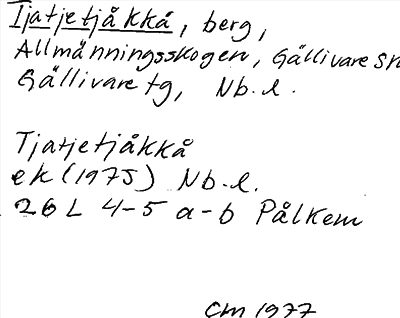 Tjatjetjåkkå, berg,
Allmänningsskogen, Gällivare sn
Gällivare tg, Nb. l.
Tjatjetjåkkå
ek (1975) Nb. l.
26 L 4-5 a-b Pålkem
CM 1977